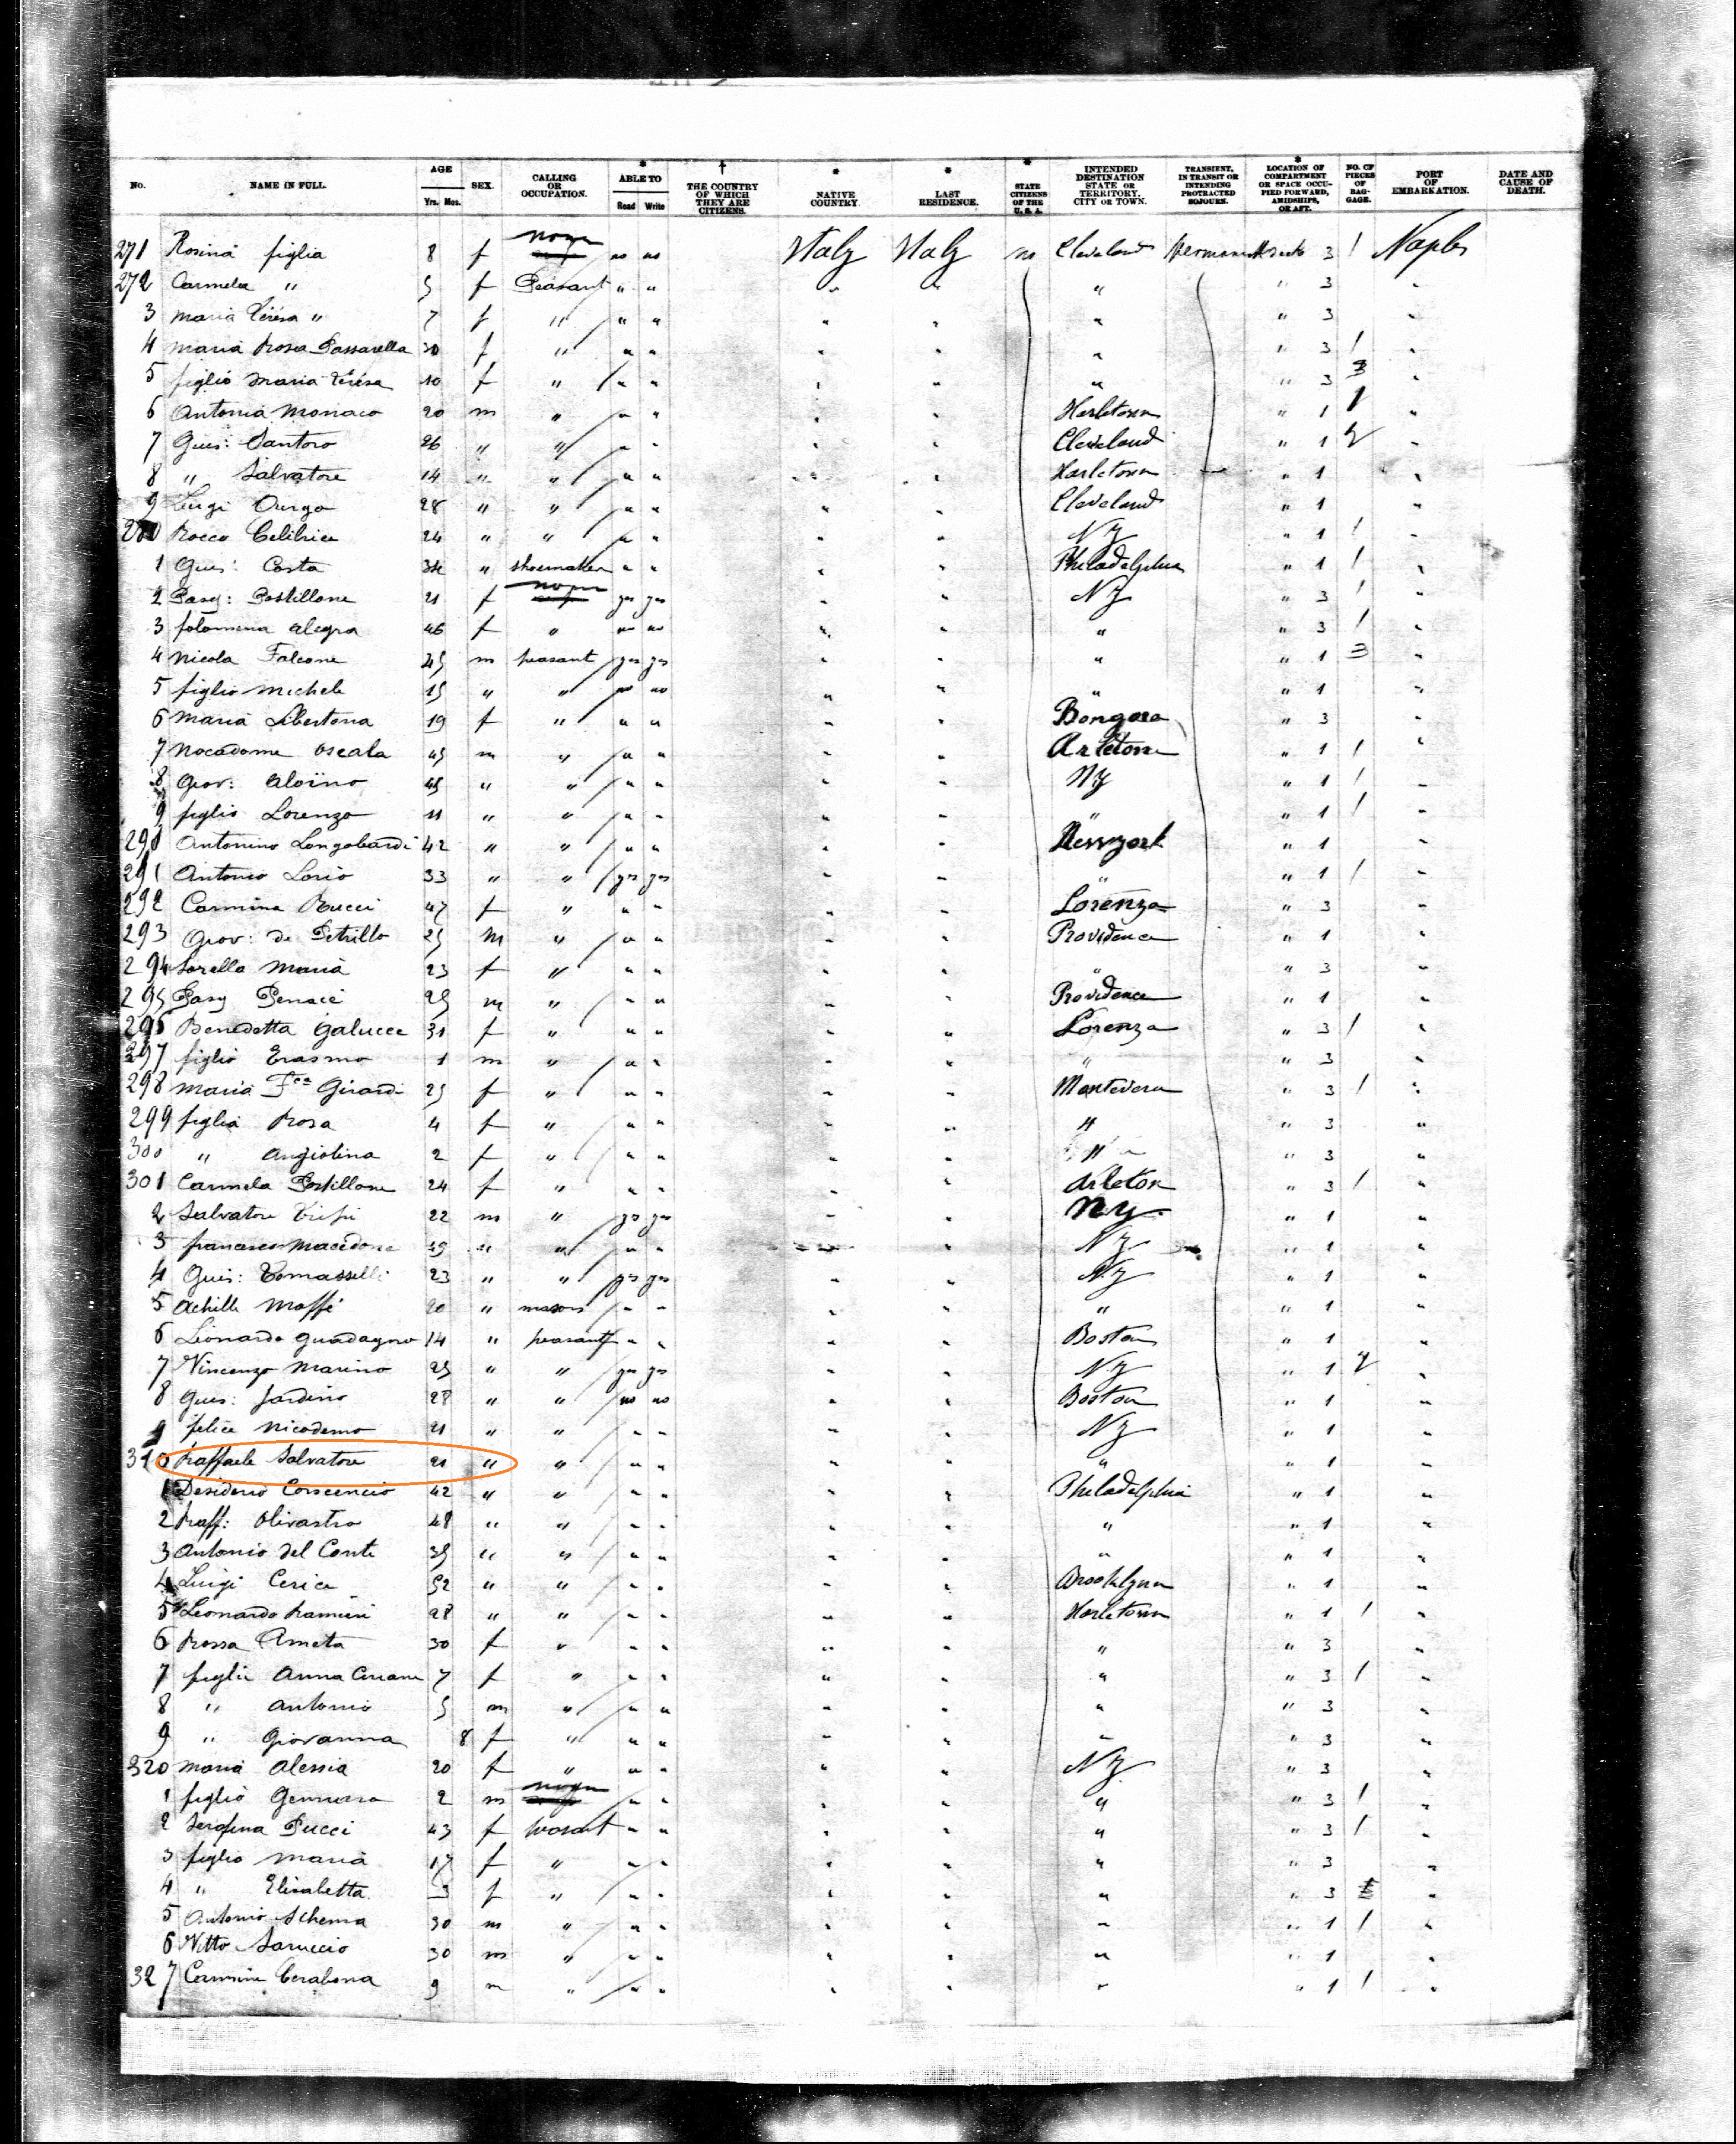 No. NAME IN FULL. AGE Yrs. Mos. SEX. CALLING OR OCCUPATION. * ABLE TO Read Write † THE COUNTRY OF WHICH THEY ARE CITIZENS. * NATIVE COUNTRY. * LAST RESIDENCE. * STATE CITIZENS OF THE U. S. A. INTENDED DESTINATION STATE OR TERRITORY, CITY OR TOWN. TRANSIENT, IN TRANSIT OR INTENDING PROTRACTED SOJOURN. * LOCATION OF COMPARTMENT OR SPACE OCCUPIED FORWARD, AMIDSHIPS, OR AFT. NO. OF PIECES OF BAGGAGE. PORT OF EMBARKATION. DATE AND CAUSE OF DEATH.
271 Rosina figlia 8 f none no no Italy Italy no Cleveland 3 1 Naples
272 Carmela " 5 f Peasant " " " " " " 3 "
3 Maria Teresa " 7 f " " " " " " " 3 "
4 Maria Rosa Passarella 30 f " " " " " " " 3 1 "
5 figlio Maria Teresa 10 f " " " " " " " 3 3 "
6 Antonia Monaco 20 m " " " " " Harletown " 1 1 "
7 Gius: Santoro 26 " " " " " " Cleveland " 1 2 "
8 " Salvatore 14 " " " " " " Harletown " 1 "
9 Luigi Durgo 28 " " " " " " Cleveland " 1 "
280 Rocco 24 " " " " " " NY " 1 1 "
1 Gius: Costa 34 " shoemaker " " " " Philadelphia " 1 1 "
2 Pasq: Postillone 21 f none yes yes " " NY " 3 1 "
3 filomena Alegra 46 f " no no " " " " 3 1 "
4 Nicola Falcone 45 m peasant yes yes " " " " 1 3 "
5 figlio Michele 15 " " no no " " " " 1 "
6 Maria Libertona 19 f " " " " " " 3 "
7 Nocadome Oscala 45 m " " " " " Arletone " 1 1 "
8 Giov: Aloino 45 " " " " " " NY " 1 1 "
9 figlio Lorenzo 11 " " " " " " " " 1 1 "
290 Antonino Longobardi 42 " " " " " " Newyork " 1 "
291 Antonio Lorio 33 " " yes yes " " " " 1 1 "
292 Carmina Rucci 47 f " " " " " Lorenza " 3 "
293 Giov: di Petrillo 25 m " " " " " Providence " 1 "
294 Sorella Maria 23 f " " " " " " " 3 "
295 Pasq Penacè 25 m " " " " " Providence " 1 "
296 Benedetta Galucce 31 f " " " " " Lorenza " 3 1 "
297 figlio Erasmo 1 m " " " " " " " 3 "
298 Maria Fca Girardi 25 f " " " " " Montevera " 3 1 "
299 figlia Rosa 4 f " " " " " " " 3 "
300 " Angiolina 2 f " " " " " " " 3 "
301 Carmela Postillone 24 f " " " " " Arleton " 3 1 "
2 Salvatore 22 m " yes yes " " N.Y. " 1 "
3 francesco Macedone " " " " " " NY " 1 "
4 Gius: Tomasselli 23 " " yes yes " " N.Y " 1 "
5 Achille Maffé 20 " mason " " " " " " 1 "
6 Leonardo Guadagno 14 " peasant " " " " Boston " 1 "
7 Vincenzo Marino 25 " " yes yes " " NY " 1 2 "
8 Gius: Jardino 28 " " no no " " Boston " 1 "
9 felice Nicodemo 21 " " " " " " NY " 1 "
310 Raffaele Salvatore 21 " " " " " " " " 1 "
1 Desiderio Conscencio 42 " " " " " " Philadelphia " 1 "
2 Raff: Olivastro 48 " " " " " " " " 1 "
3 Antonio del Conte 35 " " " " " " " " 1 "
4 Luigi Cerice 52 " " " " " " Brooklynn " 1 "
5 Leonardo Ramieri 28 " " " " " " Harletown " 1 1 "
6 Rossa Ameta 30 f " " " " " " " 3 "
7 figlia Anna 7 f " " " " " " " 3 1 "
8 " Antonio 5 m " " " " " " " 3 "
9 " Giovanna 8 f " " " " " " " 3 "
320 Maria Alessia 20 f " " " " " NY " 3 "
1 figlio Gennaro 2 m none " " " " " " 3 1 "
2 Serafina Pucci 43 f peasant " " " " " " 3 1 "
3 figlia Maria 17 f " " " " " " " 3 "
4 " Elisabetta 3 f " " " " " " " 3 "
5 Antonio Schema 30 m " " " " " " " 1 1 "
6 Vitto Saruccio 30 m " " " " " " " 1 "
327 Carmine Cerabona 9 m " " " " " " " 1 1 "